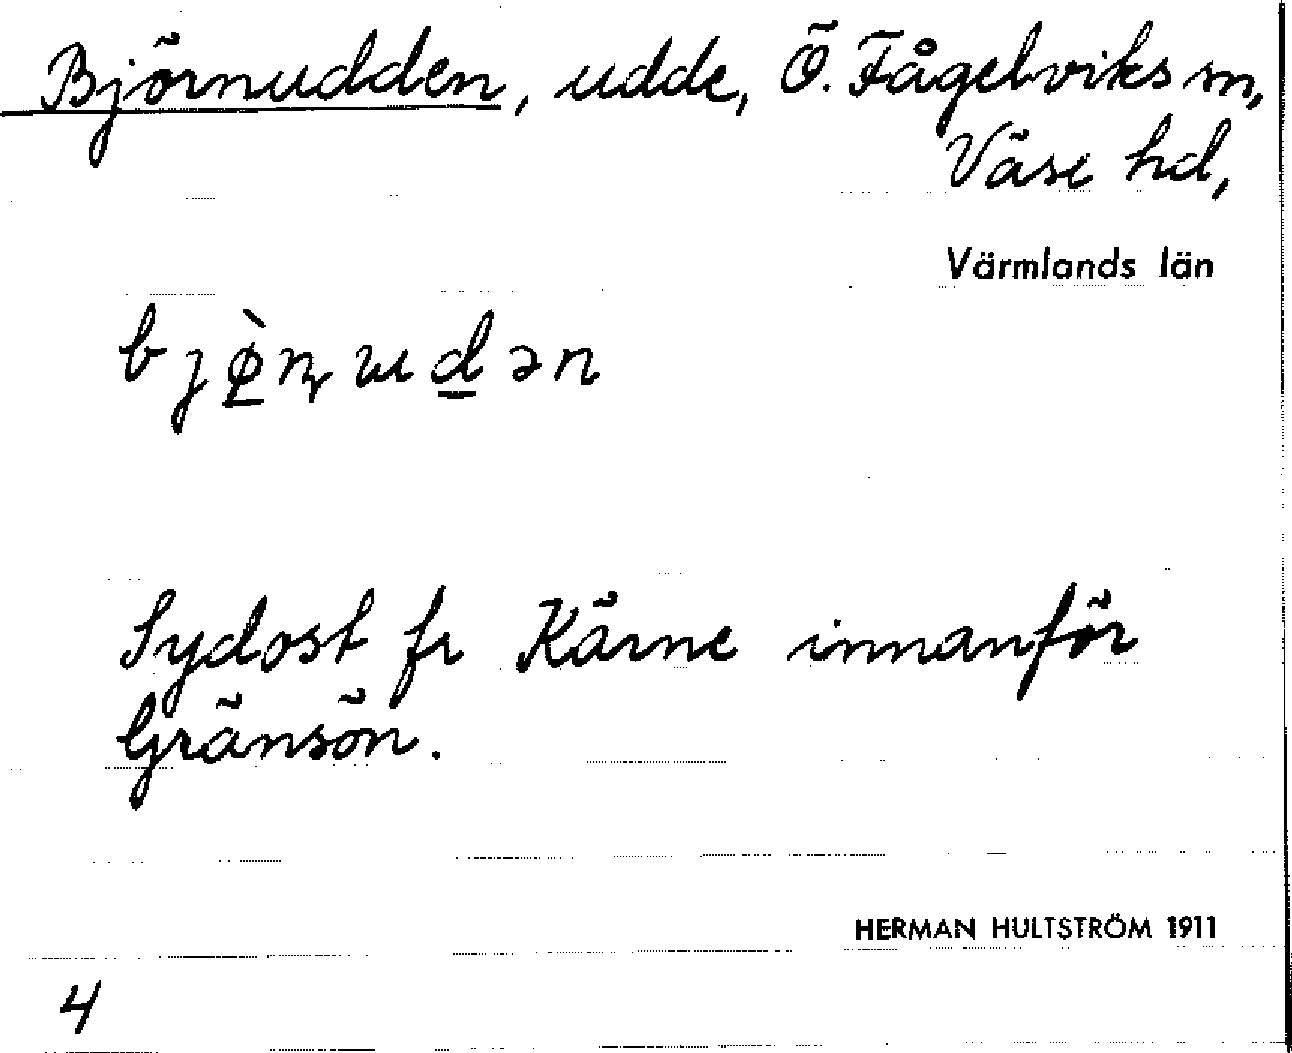 Björnudden, udde, Ö. Fågelviks sn,
Väse hd,
Värmlands län
Sydost fr Kärne innanför
Gränsön.
HERMAN HULTSTRÖM 1911
4